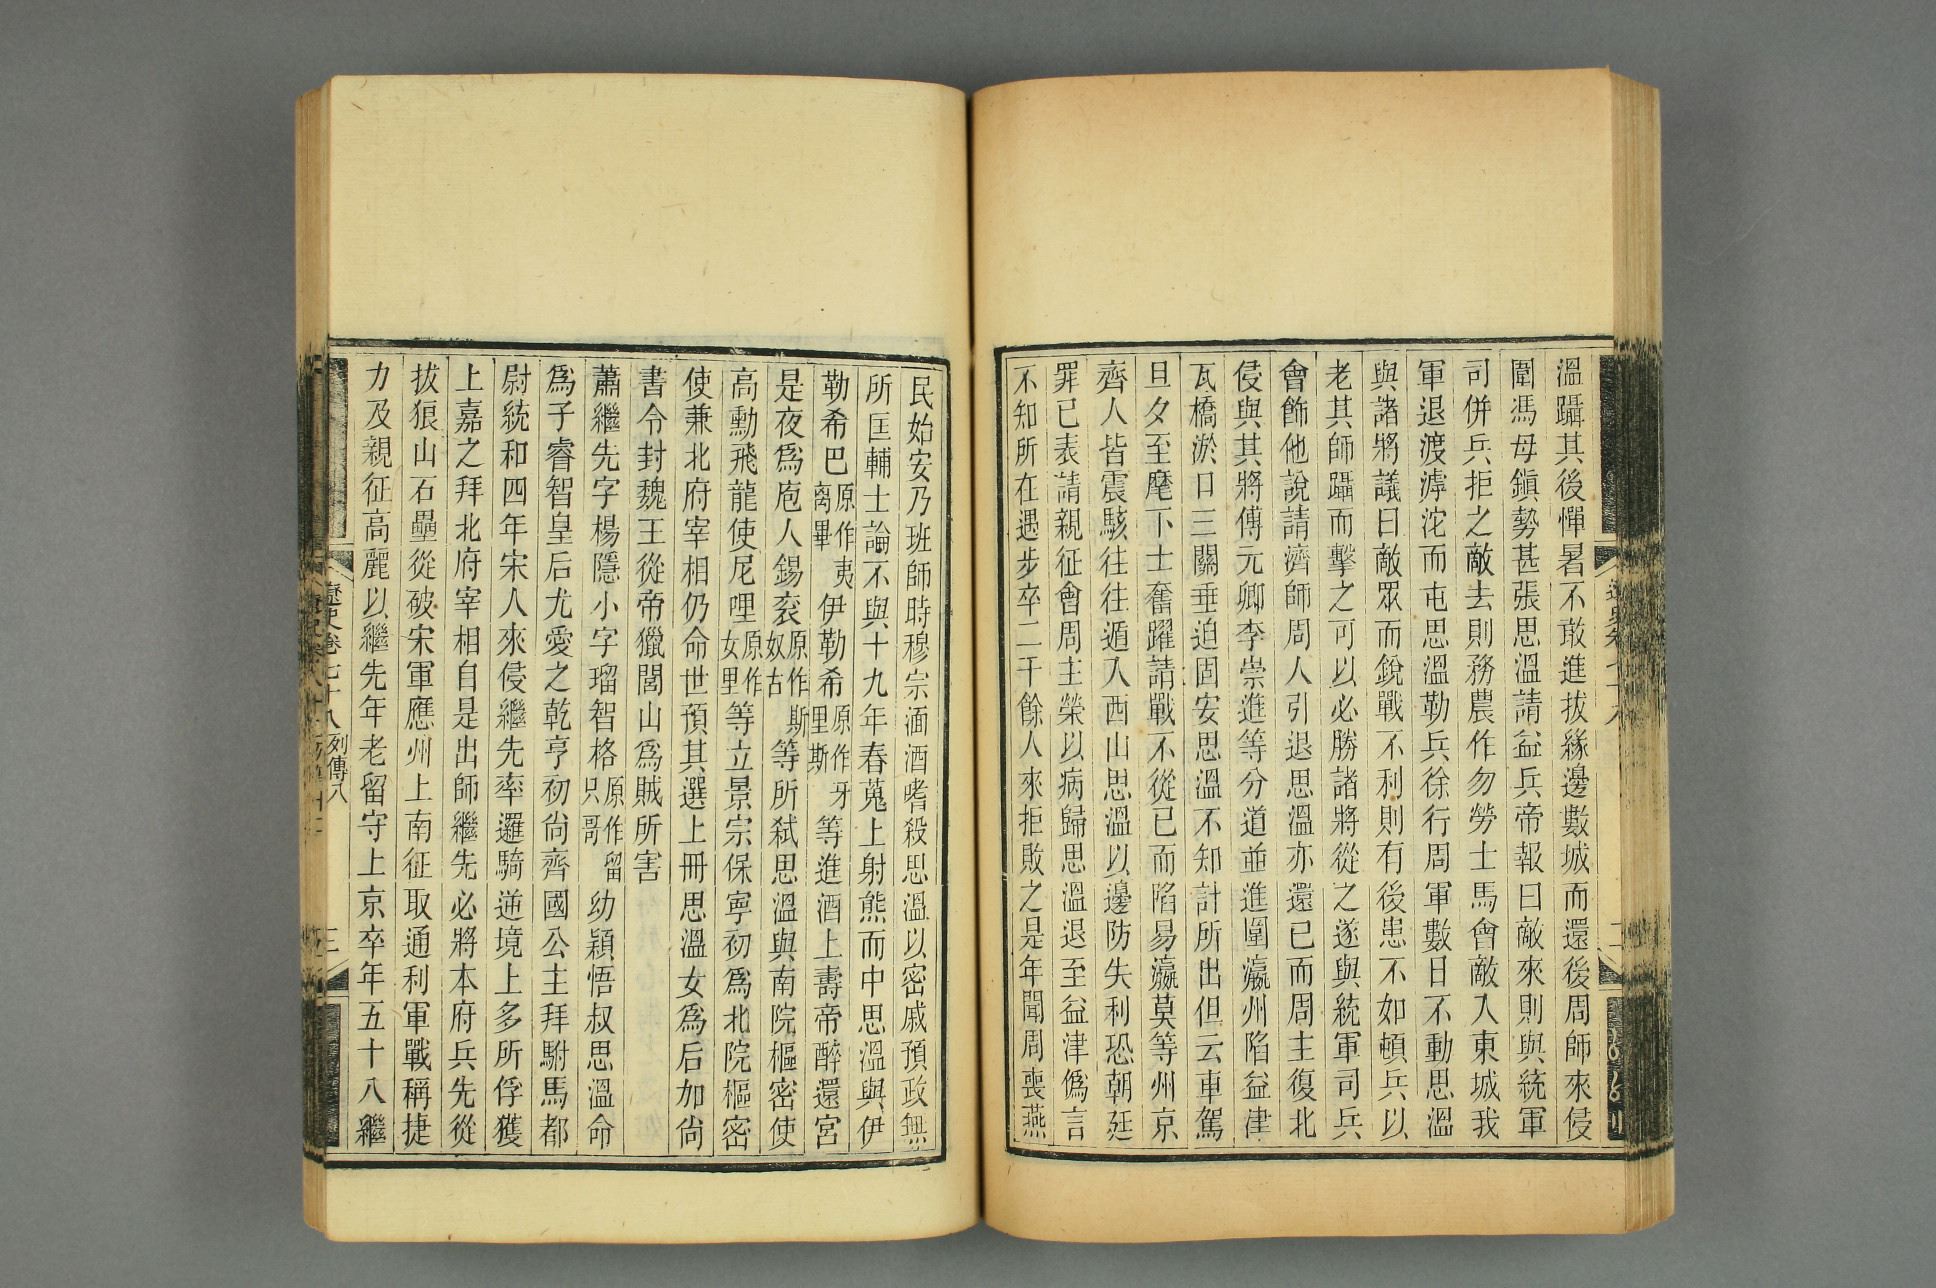 溫躡其後憚暑不敢進拔緣邊數城而還後周師來侵
圍馮母鎭勢甚張思溫請益兵帝報曰敵來則與統軍
司併兵拒之敵去則務農作勿勞士馬會敵入東城我
軍退渡滹沱而屯思溫勒兵徐行周軍數日不動思溫
與諸將議曰敵眾而銳戰不利則有後患不如頓兵以
老其師躡而擊之可以必勝諸將從之遂與統軍司兵
會飾他說請濟師周人引退思溫亦還已而周主復北
侵與其將傅元卿李崇進等分道並進圍瀛州陷益津
瓦橋淤口三關垂迫固安思溫不知計所出但云車駕
旦夕至麾下士奮躍請戰不從已而陷易瀛莫等州京
齊人皆震駭往往遁入西山思溫以邊防失利恐朝廷
罪己表請親征會周主榮以病歸思溫退至益津僞言
不知所在遇步卒二千餘人來拒敗之是年聞周喪燕
民始安乃班師時穆宗湎酒嗜殺思溫以密戚預政無
所匡輔士論不與十九年春蒐上射熊而中思溫與伊
勒希巴原作夷離畢伊勒希原作牙里斯等進酒上壽帝醉還宮
是夜爲庖人錫衮原作斯奴古等所弒思溫與南院樞密使
高勳飛龍使尼哩原作女里等立景宗保寧初爲北院樞密
使兼北府宰相仍命世預其選上冊思溫女爲后加尙
書令封魏王從帝獵閭山爲賊所害
蕭繼先字楊隱小字瑠智格原作留只哥幼穎悟叔思溫命
爲子睿智皇后尤愛之乾亨初尙齊國公主拜駙馬都
尉統和四年宋人來侵繼先率邏騎逆境上多所俘獲
上嘉之拜北府宰相自是出師繼先必將本府兵先從
拔狼山石壘從破宋軍應州上南征取通利軍戰稱捷
力及親征高麗以繼先年老留守上京卒年五十八繼
遼史卷七十八 列傳八
三